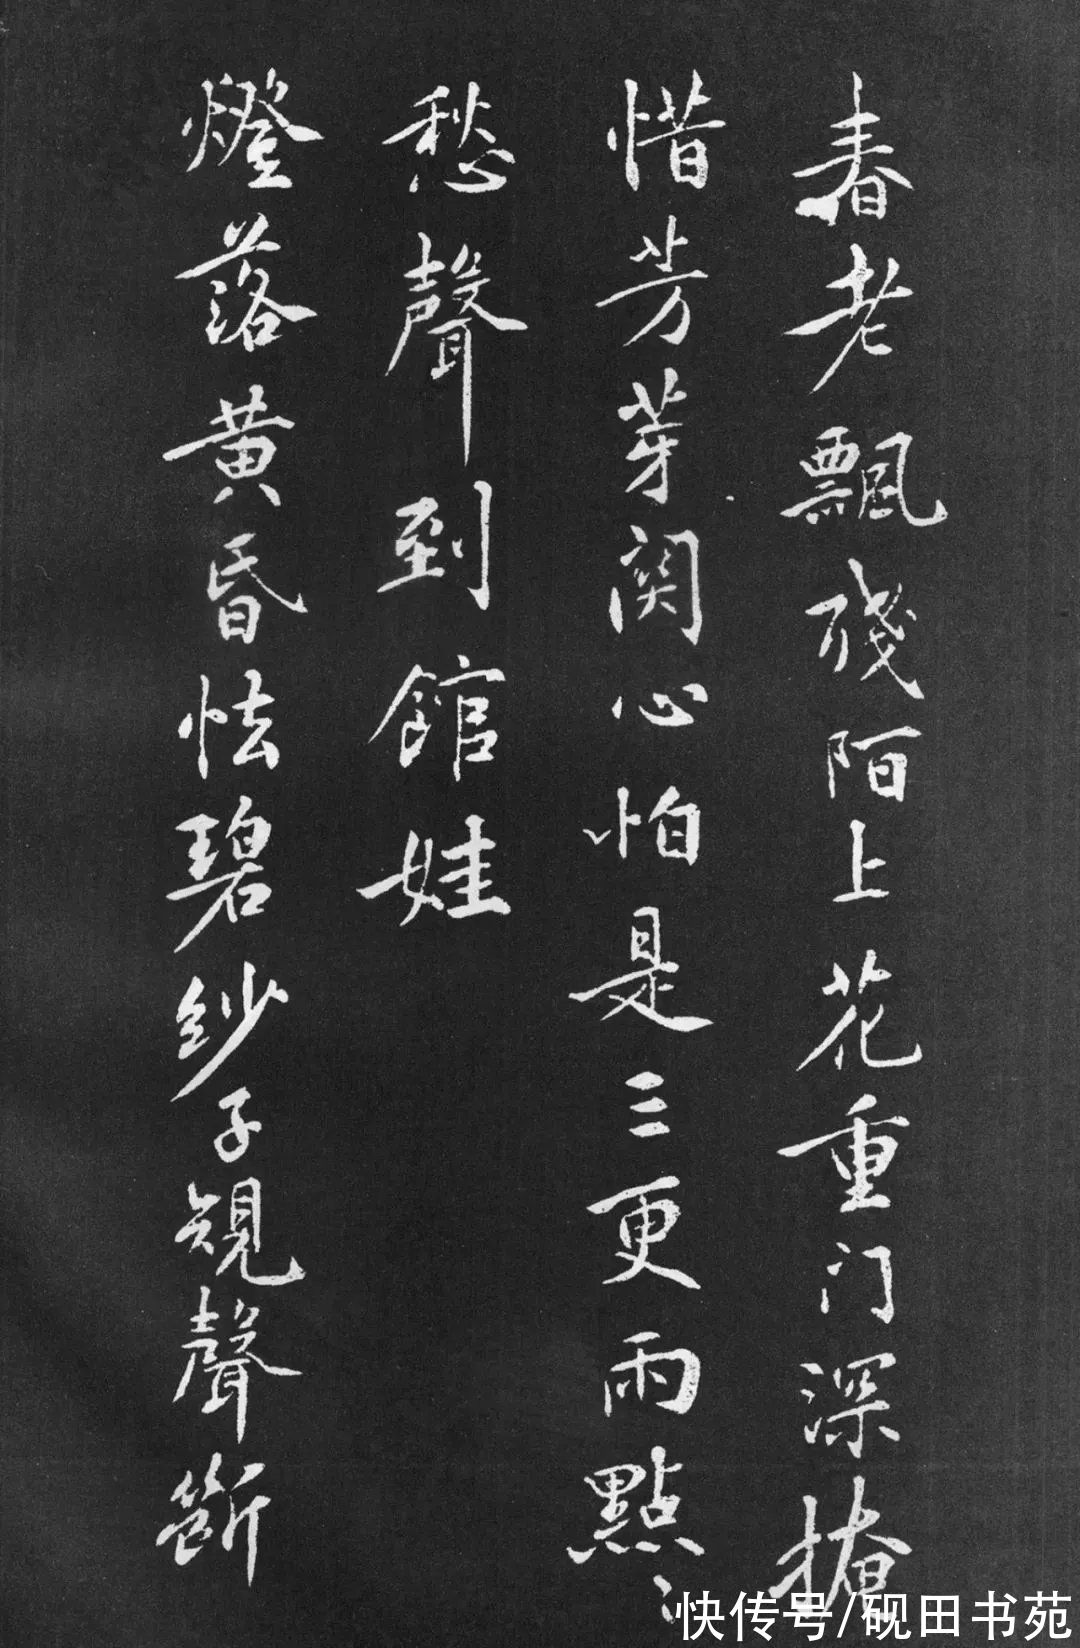 春老飄殘陌上花重门深掩
惜芳芽関心怕是三更雨點〻
愁聲到館娃
燈落黄昏怯碧紗子規聲斷
快传号/砚田书苑